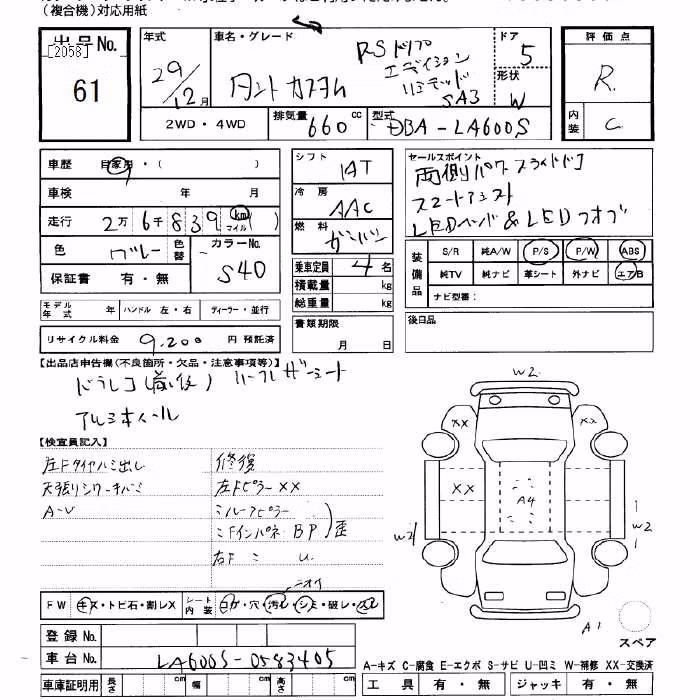 （複合機）対応用紙
出品No.
[2058]
61
年式
29/12月
車名・グレード
タント カスタム
RSトップ
エディション
リミテッド
SA3
ドア
5
形状
W
評価点
R
内装
C
2WD・4WD
排気量 660 cc
型式 DBA-LA600S
車歴 自家用・( )
車検 年 月
走行 2万6千839 km マイル ( )
色 グレー 色替
カラーNo. S40
保証書 有・無
モデル年式 年 ハンドル 左・右 ディーラー・並行
リサイクル料金 9,200 円 預託済
シフト
IAT
冷房
AAC
燃料
ガソリン
乗車定員 4 名
積載量 kg
総重量 kg
書類期限
月 日
セールスポイント
両側パワースライドドア
スマートアシスト
LEDヘッド&LEDフォグ
装備品
S/R 純A/W P/S P/W ABS
純TV 純ナビ 革シート 外ナビ エアB
ナビ型番：
後日品
【出品店申告欄(不良箇所・欠品・注意事項等)】
ドラレコ(前後) ハーフレザーシート
アルミホイール
【検査員記入】
左Fタイヤハミ出し
天張りシワ・キバミ
A-V
修復
左Fピラー XX
ミルーフピラー
ミFインパネ BP 歪
右F ミ U
ニオイ
FW キズ・トビ石・割レX
シート内装 コゲ・穴・汚レ・シミ・破レ・スレ
登録No.
車台No. LA600S-0583405
車庫証明用 長さ cm 幅 cm 高さ cm
W2
XX XX
XX
A4
W2 W2
A1
スペア
A-キズ C-腐食 E-エクボ S-サビ U-凹ミ W-補修 XX-交換済
工具 有・無 ジャッキ 有・無